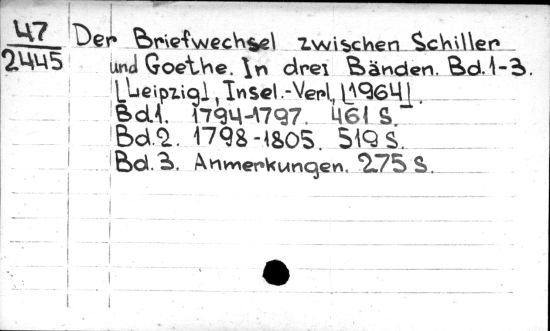 47
2445
Der Briefwechsel zwischen Schiller
und Goethe. In drei Bänden. Bd.1-3.
[Leipzig], Insel.-Verl, [1964].
Bd.1. 1794-1797. 461 S.
Bd.2. 1798-1805. 519 S.
Bd.3. Anmerkungen. 275 S.